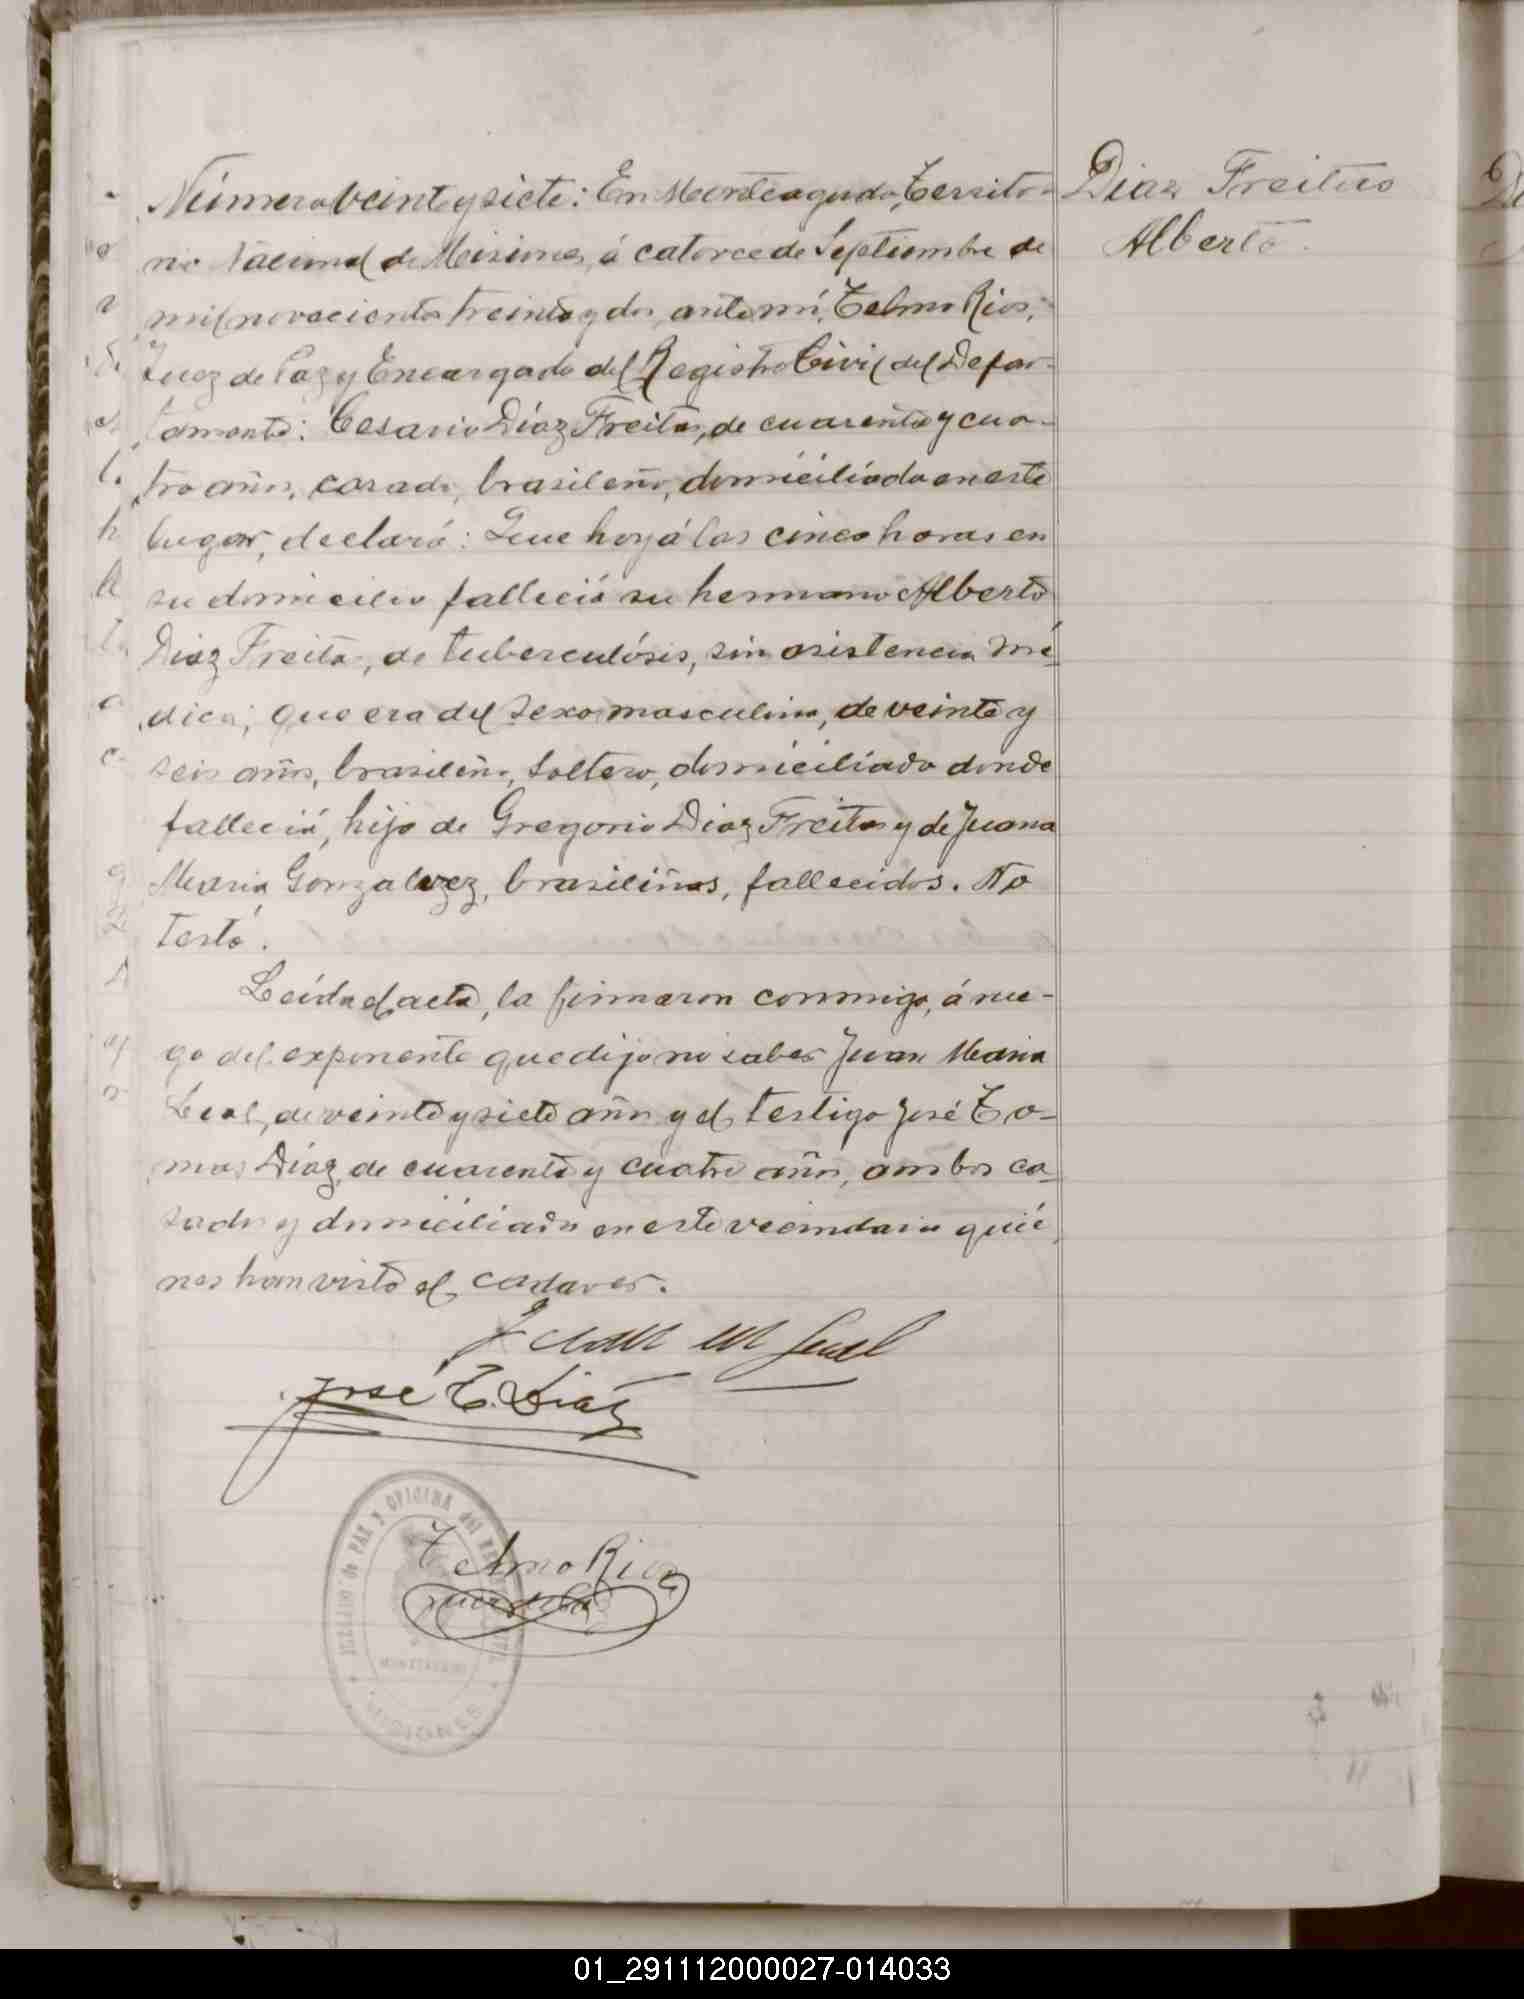 Número veinte y siete: En Monteagudo, Territo-
rio Nacional de Misiones, á catorce de Septiembre de
mil novecientos treinta y dos, ante mí, Telmo Rios,
Juez de Paz y Encargado del Registro Civil del Depar-
tamento: Cesario Díaz Freitas, de cuarenta y cua-
tro años, casado, brasileño, domiciliado en este
lugar, declaró: Que hoy á las cinco horas en
su domicilio falleció su hermano Alberto
Diaz Freitas, de tuberculósis, sin asistencia mé-
dica; que era del sexo masculino, de veinte y
seis años, brasileño, soltero, domiciliado donde
falleció, hijo de Gregorio Diaz Freitas y de Juana
Maria Gonzalvez, brasileños, fallecidos. No
testó.
Leída el acta, la firmaron conmigo, á rue-
go del exponente que dijo no saber Juan Maria
Leal, de veinte y siete años y el testigo José To-
mas Díaz, de cuarenta y cuatro años, ambos ca-
sados y domiciliados en este vecindario quié-
nes han visto el cadaver.
Juan M Leal
José T. Díaz
Telmo Rios
Juez de Paz
JUZGADO de PAZ Y OFICINA del REGISTRO CIVIL
MONTEAGUDO
MISIONES
Diaz Freitas
Alberto.
01_291112000027-014033